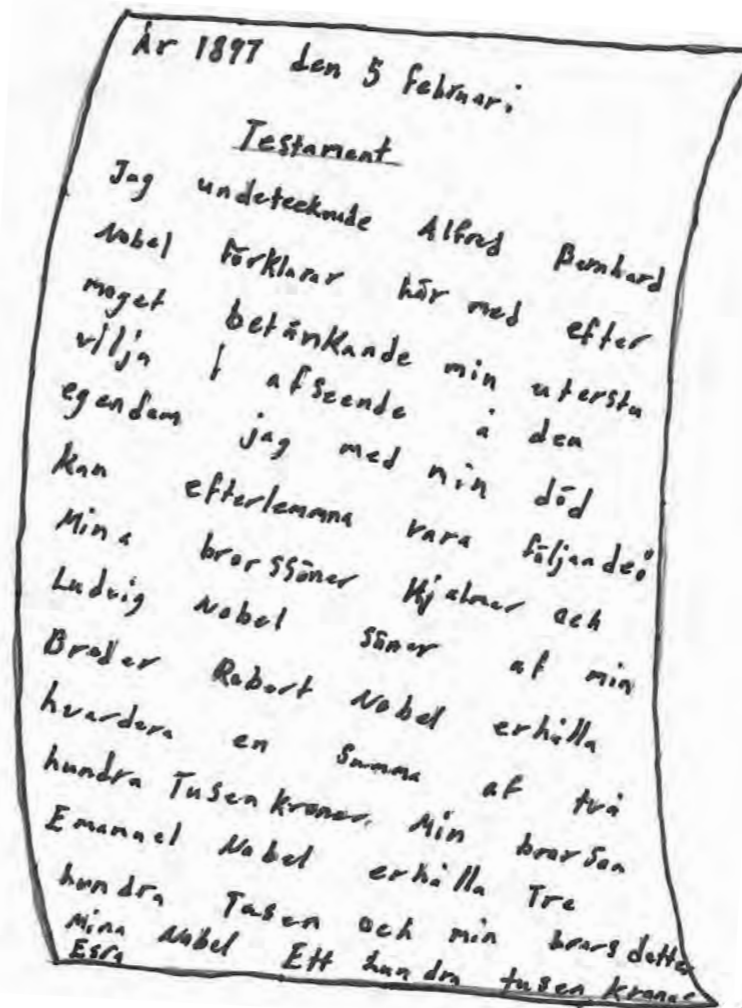 År 1897 den 5 februari
Testament
Jag undetecknade Alfred Bernhard
Nobel förklarar här med efter
moget betänkande min utersta
vilja i afseende å den
egendom jag med min död
kan efterlemmna vara följande:
Mina brorssöner Hjalmer och
Ludvig Nobel söner af min
Broder Robert Nobel erhålla
hvardera en summa af två
hundra Tusen kroner. Min brorSon
Emanuel Nobel erhålla Tre
hundra Tusen och min brorsdotter
Mina Nobel Ett hundra tusen kroner
Esra